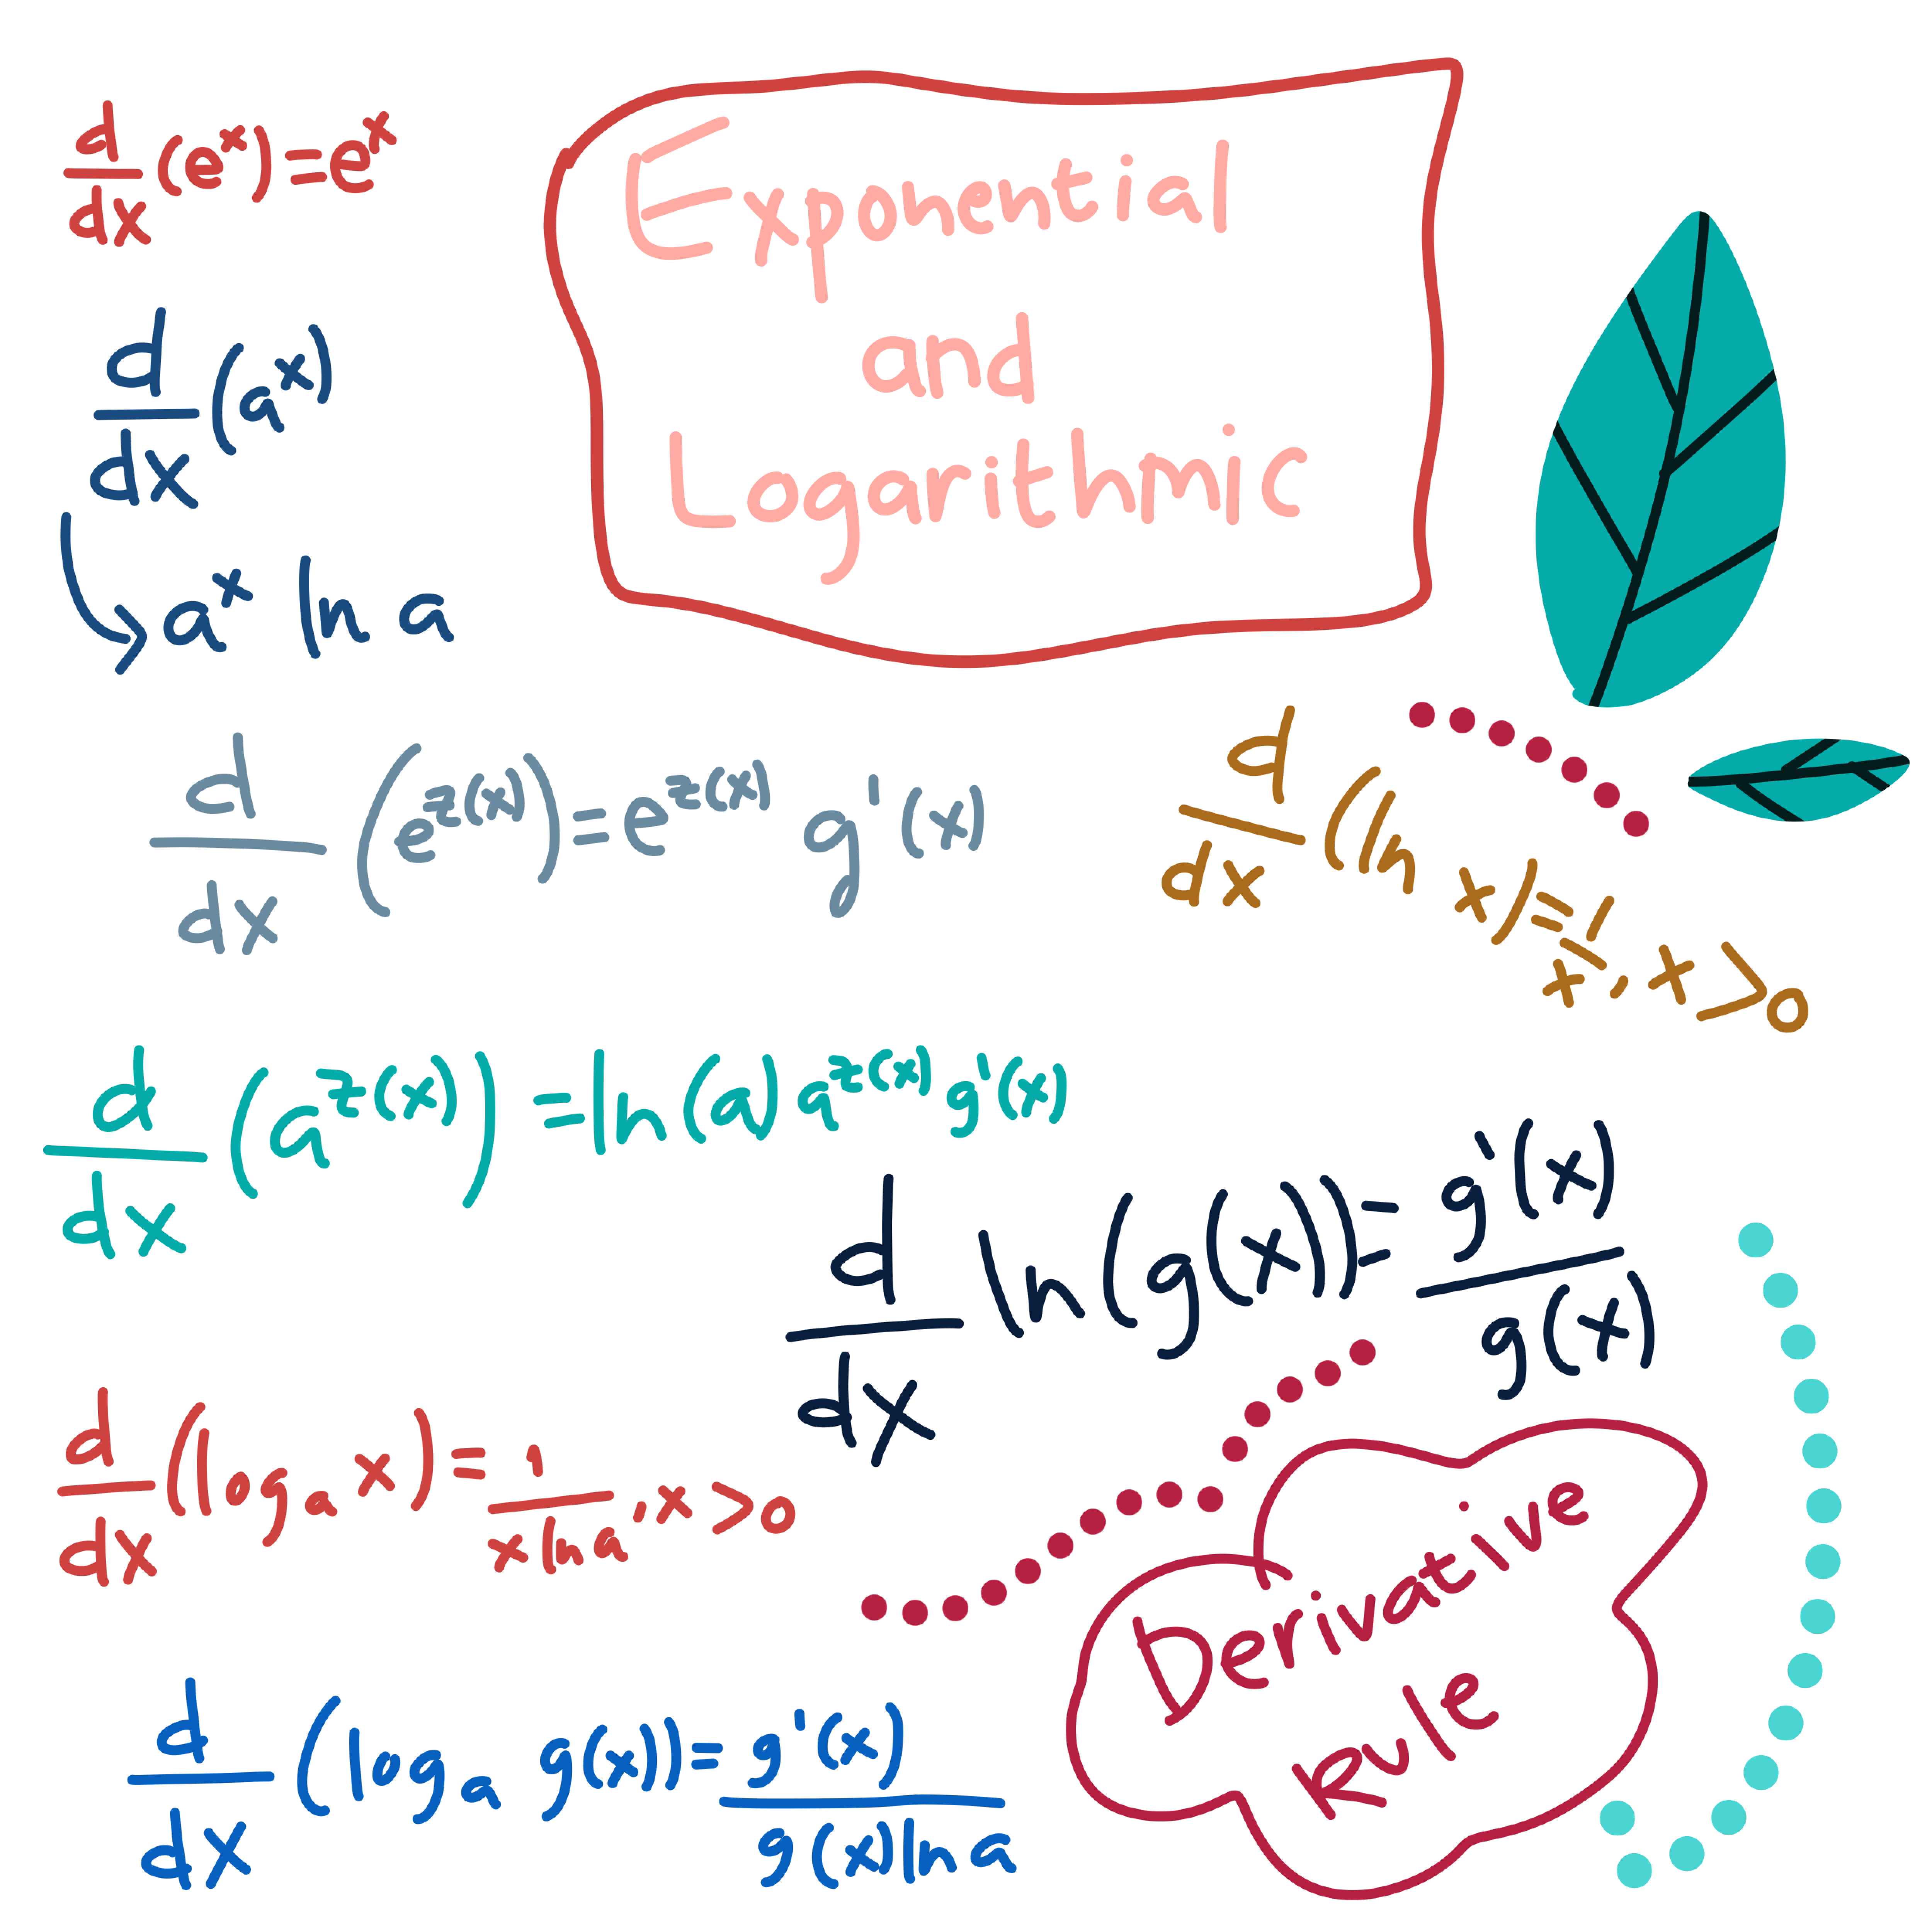 d/dx (e^x) = e^x
Exponential
and
Logarithmic
d/dx (a^x)
a^x ln a
d/dx (e^{g(x)}) = e^{g(x)} g'(x)
d/dx (ln x) = 1/x, x > 0
d/dx (a^{g(x)}) = ln(a) a^{g(x)} g'(x)
d/dx ln(g(x)) = g'(x)/g(x)
d/dx (log_a x) = 1/(x ln a), x > 0
Derivative
Rule
d/dx (log_a g(x)) = g'(x)/(g(x) ln a)